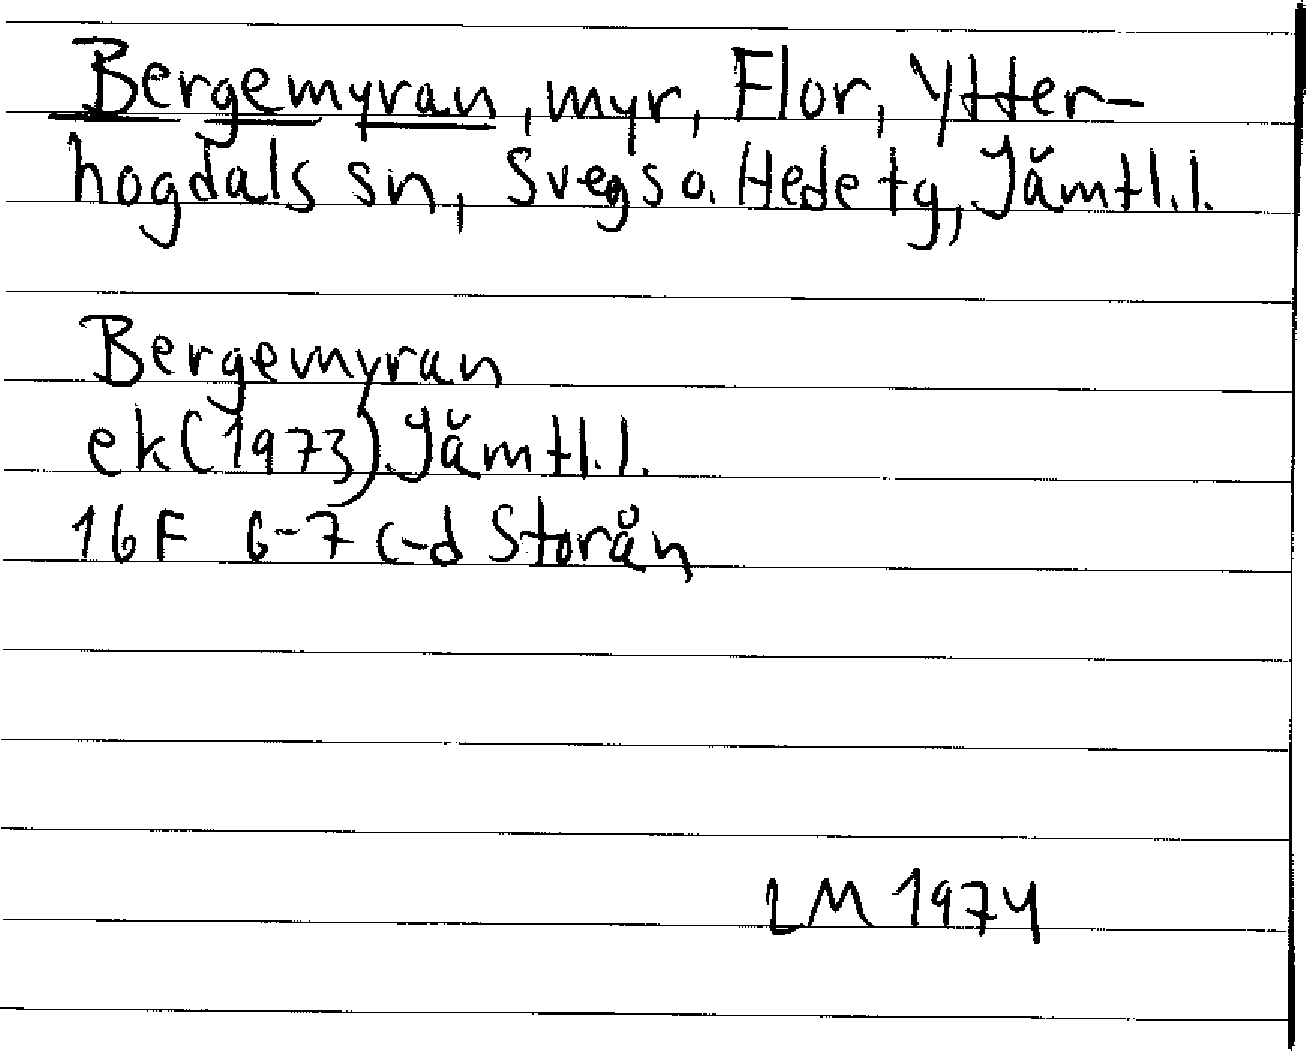 Bergemyran, myr, Flor, Ytter-
hogdals sn, Svegs o. Hede tg, Jämtl.l.
Bergemyran
ek(1973) Jämtl.l.
16F 6-7 c-d Storån
LM 1974